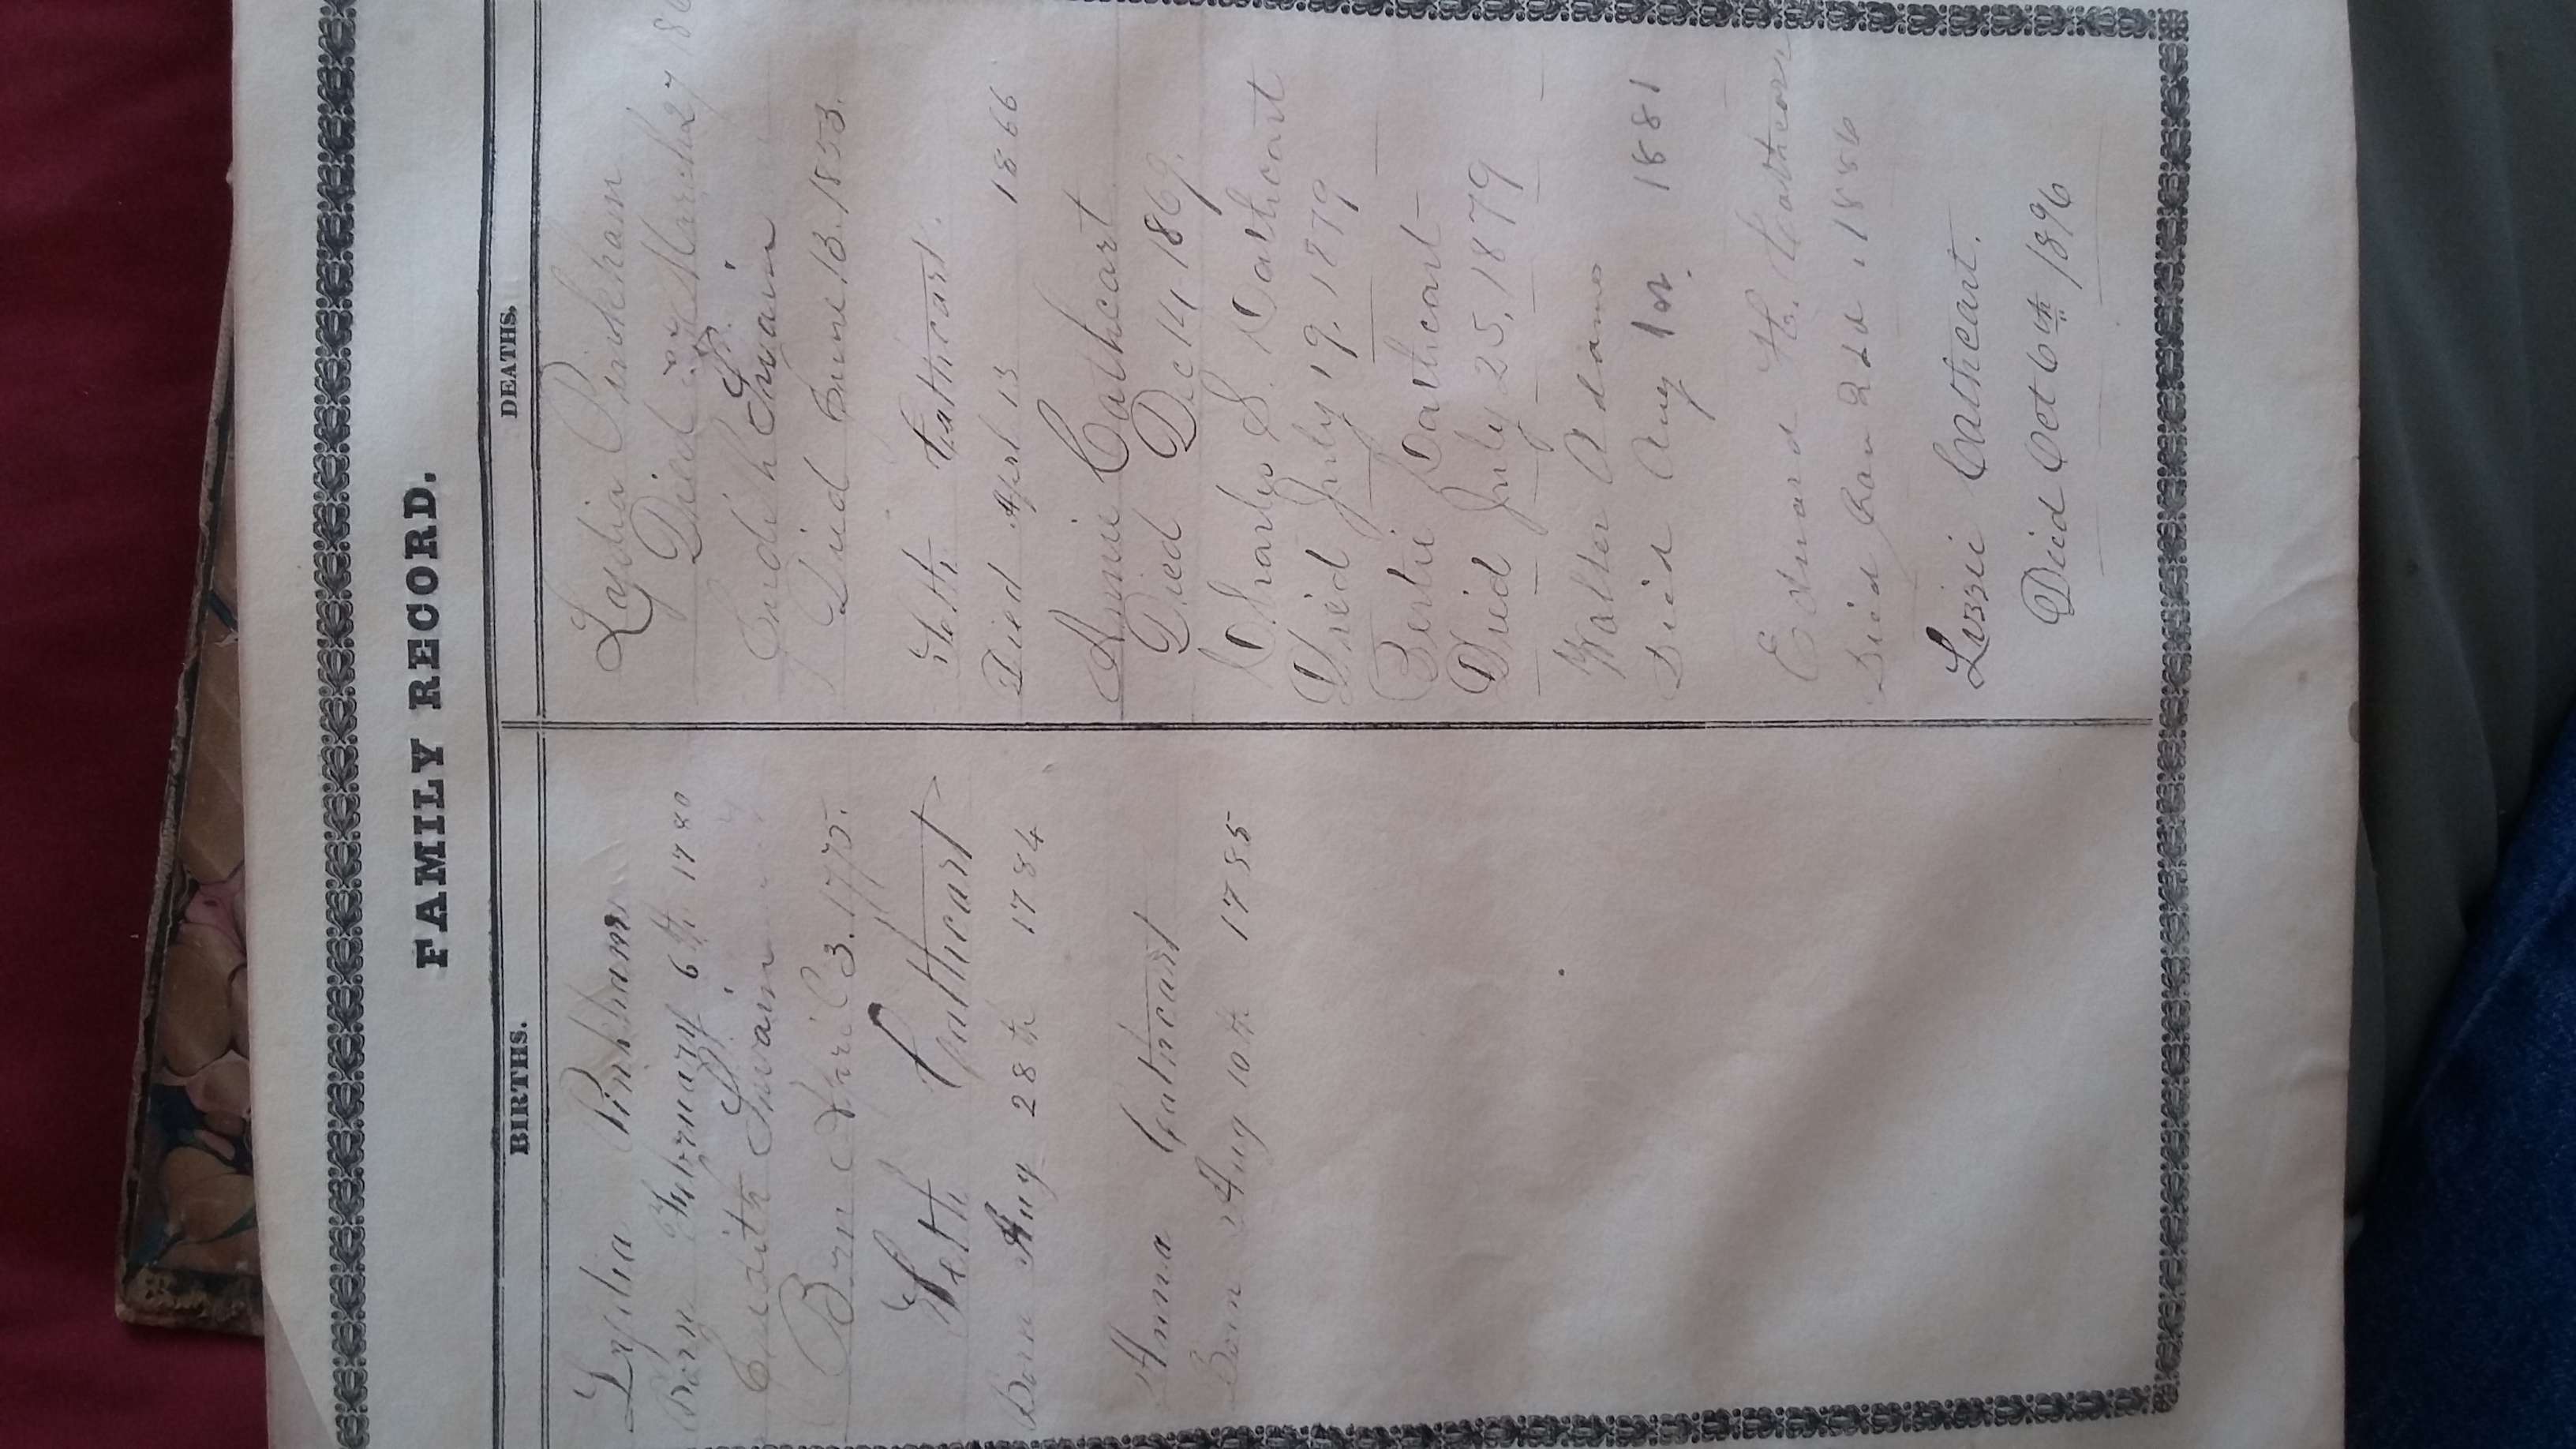 FAMILY RECORD.
BIRTHS.
Lydia Pinkham
Born Feberuary 6th 1780
Judith S. Swain
Born April 3. 1775.
Seth Cathcart
Born Aug 28th 1784
Anna Cathcart
Born Aug 10th 1785
DEATHS.
Laydia Pinkham
Died March 27
Judith S. Swain
Died June 13. 1853.
Seth Cathcart.
Died Aprl 13 1866
Annie Cathcart
Died Dec 14, 1869.
Charles S. Cathcart
Died July 19. 1879
Bertie Cathcart
Died July 25, 1879
Walter Adams
Died Aug 1881
Edward H. Cathcart
Died Jan 22d. 1886
Lizzie Cathcart.
Died Oct 6th 1896